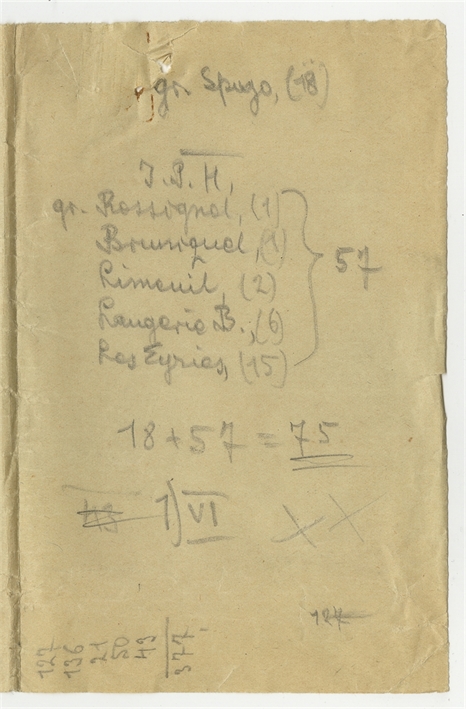 gr. Spugo, (18)
I. P. H,
gr. Rossignol, (1)
Bruniquel, (1)
Limeuil, (2)
Laugerie B., (6)
Les Eyzies, (15)
57
18 + 57 = 75
1) VI
X X
127
122
136
21
50
43
377